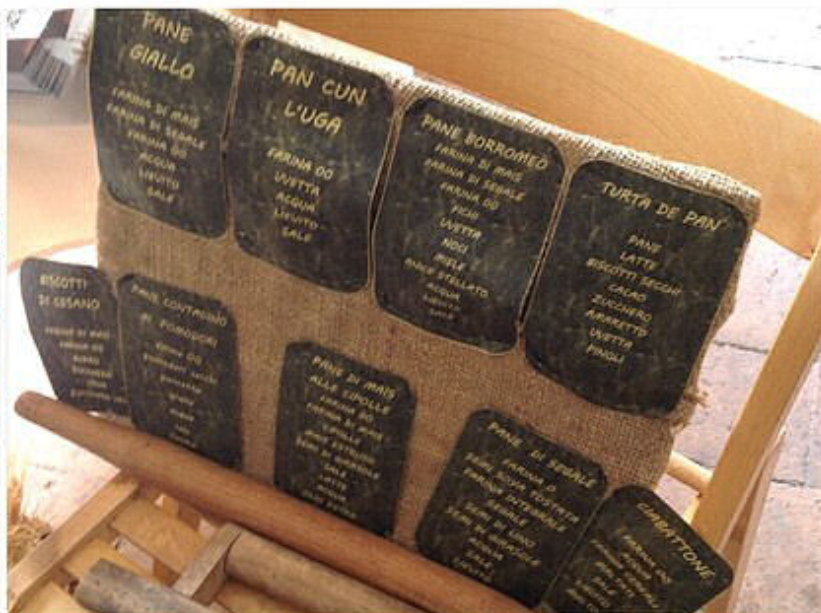 PANE
GIALLO
FARINA DI MAIS
FARINA DI SEGALE
FARINA 00
ACQUA
LIEVITO
SALE
PAN CUN
L'UGA
FARINA 00
UVETTA
ACQUA
LIEVITO
SALE
PANE BORROMEO
FARINA DI MAIS
FARINA DI SEGALE
FARINA 00
FICHI
UVETTA
NOCI
MIELE
ANICE STELLATO
ACQUA
LIEVITO
SALE
TURTA DE PAN'
PANE
LATTE
BISCOTTI SECCHI
CACAO
ZUCCHERO
AMARETTO
UVETTA
PINOLI
BISCOTTI
DI CUSANO
FARINA DI MAIS
FARINA 00
BURRO
ZUCCHERO
UOVA
PANE CONTADINO
AI POMODORI
FARINA 00
POMODORI SECCHI
ACQUA
PANE DI MAIS
ALLE CIPOLLE
FARINA 00
FARINA DI MAIS
CIPOLLE
MAIS
SEMI DI GIRASOLE
SALE
LATTE
ACQUA
PANE DI SEGALE
FARINA 0
SEMI SOYA TOSTATA
FARINA INTEGRALE
SEGALE
SEMI DI LINO
SEMI DI GIRASOLE
ACQUA
SALE
LIEVITO
CIABATTONE
FARINA 00
ACQUA
SALE
LIEVITO